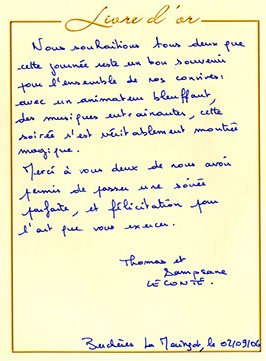 Livre d'or
Nous souhaitions tous deux que
cette journée reste un bon souvenir
pour l'ensemble de nos convives:
avec un animateur bleuffant,
des musiques entrainantes, cette
soirée s'est véritablement montrée
magique.
Merci à vous deux de nous avoir
permis de passer une soirée
parfaite, et félicitation pour
l'art que vous exercez.
Thomas et
LECONTE.
le 02/09/06